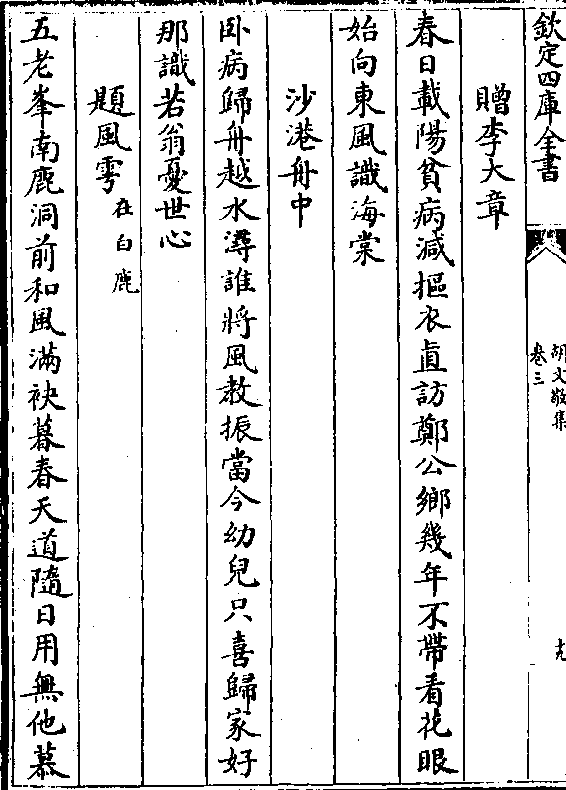 欽定四庫全書
胡文敬集
卷三
贈李大章
春日載陽貧病減摳衣直訪鄭公鄉幾年不帶看花眼
始向東風識海棠
沙港舟中
卧病歸舟越水潯誰將風敎振當今幼兒只喜歸家好
那識若翁憂世心
題風雩在白鹿
五老峯南鹿洞前和風滿袂暮春天道隨日用無他慕